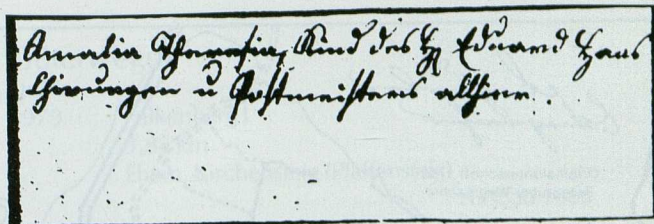 Amalia Theresia, Kind des H Eduard Haas
Chirurgen u Postmeisters allhier.